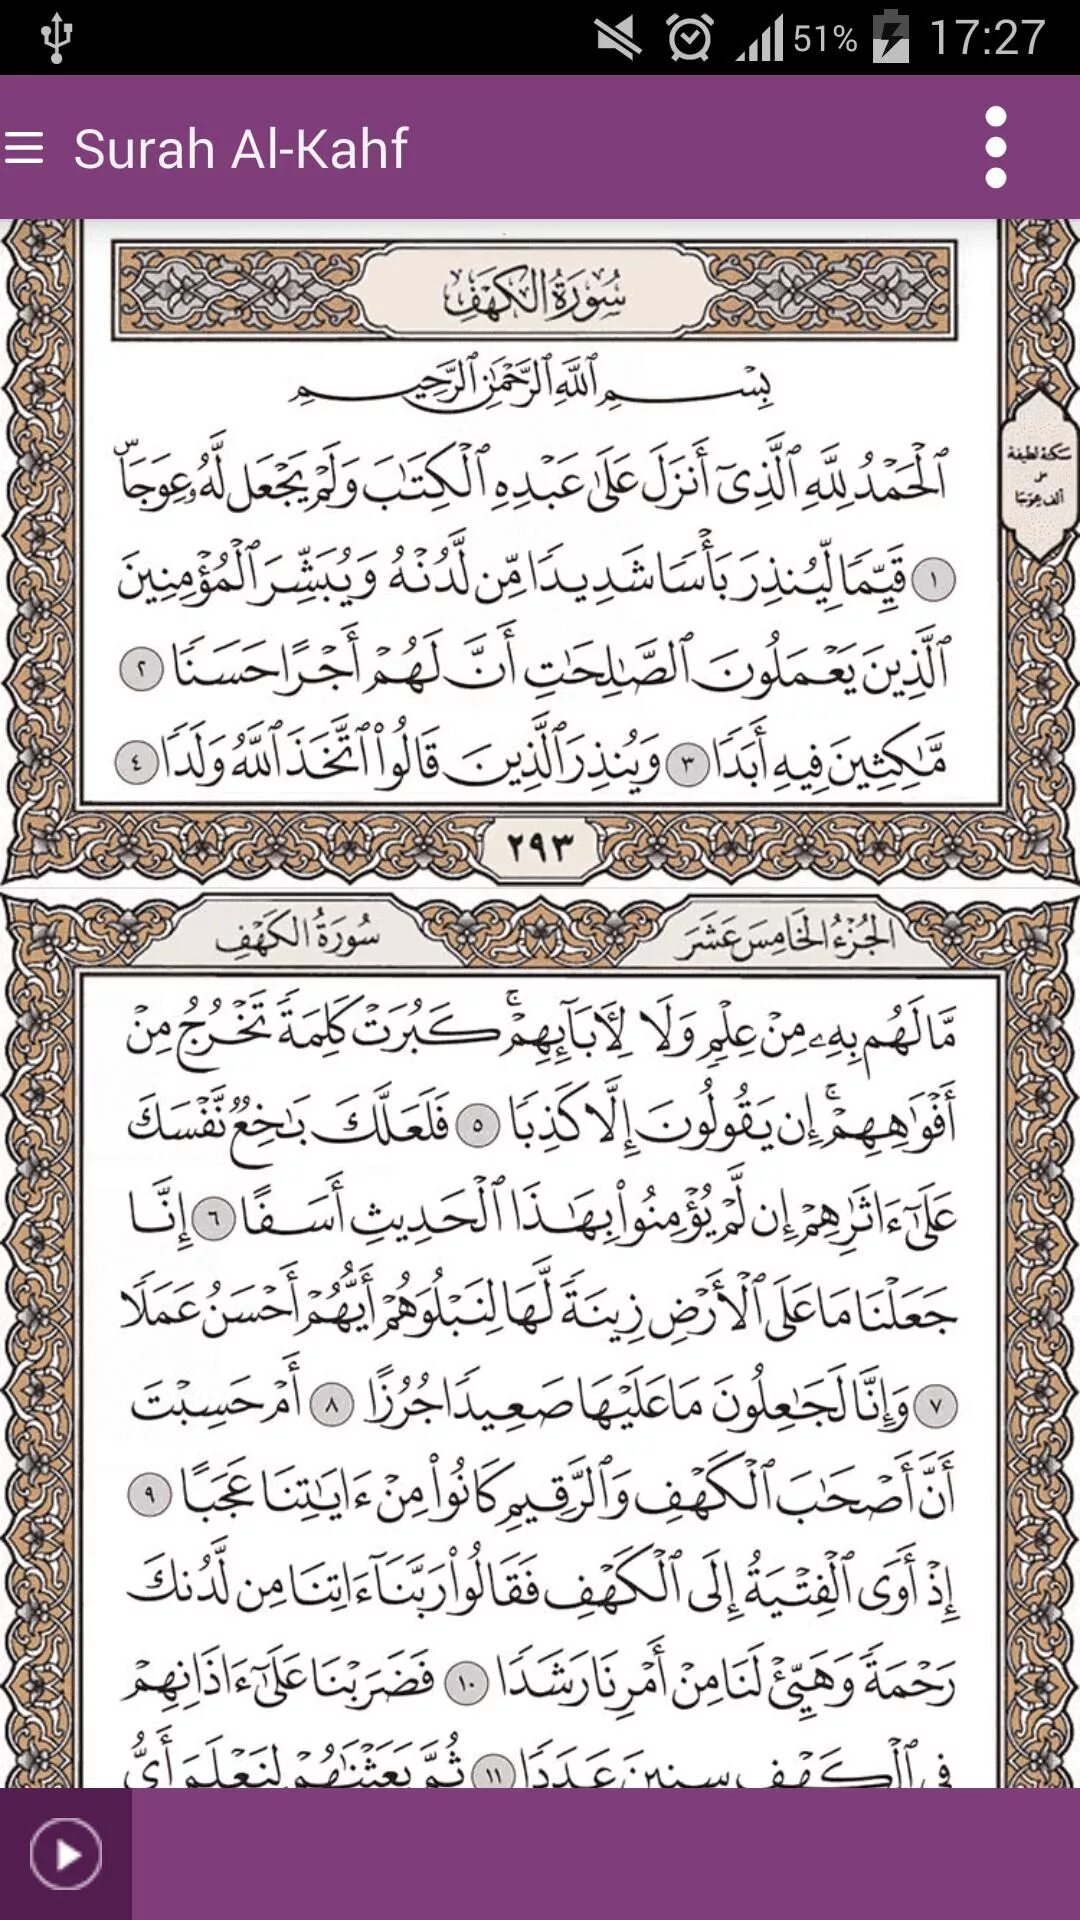 51% 17:27
Surah Al-Kahf
سُورَةُ الكَهْفِ
بِسْمِ ٱللَّهِ ٱلرَّحْمَٰنِ ٱلرَّحِيمِ
ٱلْحَمْدُ لِلَّهِ ٱلَّذِىٓ أَنزَلَ عَلَىٰ عَبْدِهِ ٱلْكِتَٰبَ وَلَمْ يَجْعَل لَّهُۥ عِوَجَاۜ
سكتة لطيفة
على
ألف عِوَجَا
١ قَيِّمًا لِّيُنذِرَ بَأْسًا شَدِيدًا مِّن لَّدُنْهُ وَيُبَشِّرَ ٱلْمُؤْمِنِينَ
ٱلَّذِينَ يَعْمَلُونَ ٱلصَّٰلِحَٰتِ أَنَّ لَهُمْ أَجْرًا حَسَنًا ٢
مَّٰكِثِينَ فِيهِ أَبَدًا ٣ وَيُنذِرَ ٱلَّذِينَ قَالُوا۟ ٱتَّخَذَ ٱللَّهُ وَلَدًا ٤
٢٩٣
الجُزْءُ الخَامِسَ عَشَرَ سُورَةُ الكَهْفِ
مَّا لَهُم بِهِۦ مِنْ عِلْمٍ وَلَا لِـَٔابَآئِهِمْ ۚ كَبُرَتْ كَلِمَةً تَخْرُجُ مِنْ
أَفْوَٰهِهِمْ ۚ إِن يَقُولُونَ إِلَّا كَذِبًا ٥ فَلَعَلَّكَ بَٰخِعٌ نَّفْسَكَ
عَلَىٰٓ ءَاثَٰرِهِمْ إِن لَّمْ يُؤْمِنُوا۟ بِهَٰذَا ٱلْحَدِيثِ أَسَفًا ٦ إِنَّا
جَعَلْنَا مَا عَلَى ٱلْأَرْضِ زِينَةً لَّهَا لِنَبْلُوَهُمْ أَيُّهُمْ أَحْسَنُ عَمَلًا
٧ وَإِنَّا لَجَٰعِلُونَ مَا عَلَيْهَا صَعِيدًا جُرُزًا ٨ أَمْ حَسِبْتَ
أَنَّ أَصْحَٰبَ ٱلْكَهْفِ وَٱلرَّقِيمِ كَانُوا۟ مِنْ ءَايَٰتِنَا عَجَبًا ٩
إِذْ أَوَى ٱلْفِتْيَةُ إِلَى ٱلْكَهْفِ فَقَالُوا۟ رَبَّنَآ ءَاتِنَا مِن لَّدُنكَ
رَحْمَةً وَهَيِّئْ لَنَا مِنْ أَمْرِنَا رَشَدًا ١٠ فَضَرَبْنَا عَلَىٰٓ ءَاذَانِهِمْ
فِى ٱلْكَهْفِ سِنِينَ عَدَدًا ١١ ثُمَّ بَعَثْنَٰهُمْ لِنَعْلَمَ أَىُّ